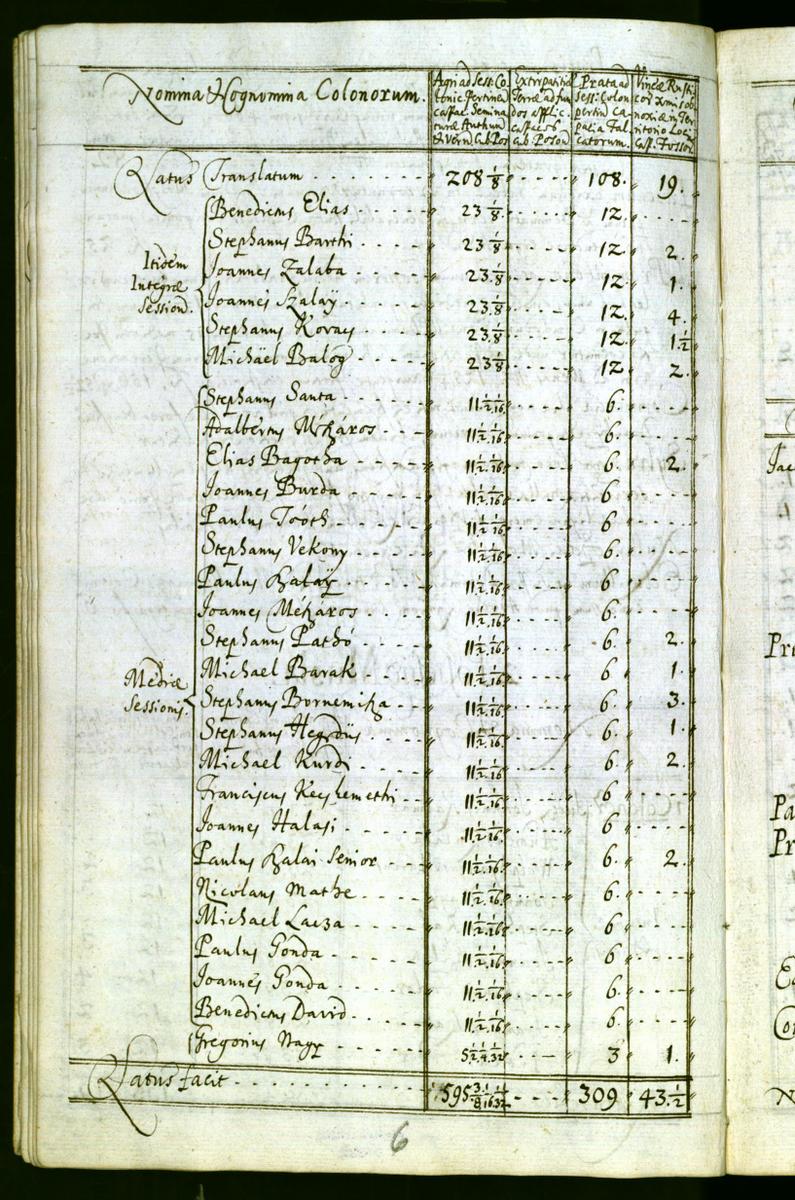 Nomina & Cognomina Colonorum. Agri ad Sess: Colonic: Pertinen: Extirpatitiæ Terræ ad fundos applic: Prata ad Sess: Colon: pertin: Vineæ Rusti
Latus Translatum 208 1/8 108. 19.
Benedictus Elias 23 1/8 12.
Stephanus Barthi 23 1/8 12. 2.
Itidem Integræ Session. Joannes Zalaba 23 1/8 12. 1.
Joannes Szalaÿ 23 1/8 12. 4.
Stephanus Kovacs 23 1/8 12. 1 1/2
Michäel Balog 23 1/8 12 2.
Stephanus Santa 11 1/2 1/16 6.
Adalbertus Mészáros 11 1/2 1/16 6.
Elias Bagotha 11 1/2 1/16 6. 2.
Joannes Burda 11 1/2 1/16 6.
Paulus Toóth 11 1/2 1/16 6
Stephanus Vekony 11 1/2 1/16 6.
Paulus Halaÿ 11 1/2 1/16 6
Joannes Mészáros 11 1/2 1/16 6.
Stephanus Pathó 11 1/2 1/16 6. 2.
Mediæ Sessionis. Michael Barak 11 1/2 1/16 6. 1.
Stephanus Bornemisza 11 1/2 1/16 6. 3.
Stephanus Hegedüs 11 1/2 1/16 6. 1.
Michael Kurdi 11 1/2 1/16 6. 2.
Franciscus Kecskemethi 11 1/2 1/16 6.
Joannes Halasi 11 1/2 1/16 6
Paulus Halai Senior 11 1/2 1/16 6. 2.
Nicolaus Mathe 11 1/2 1/16 6.
Michael Lacza 11 1/2 1/16 6
Paulus Gonda 11 1/2 1/16 6
Joannes Gonda 11 1/2 1/16 6.
Benedictus David 11 1/2 1/16 6.
Gregorius Nagy 5 1/2 1/4 1/32 3 1.
Latus facit 595 3/8 1/16 1/32 309 43 1/2
6